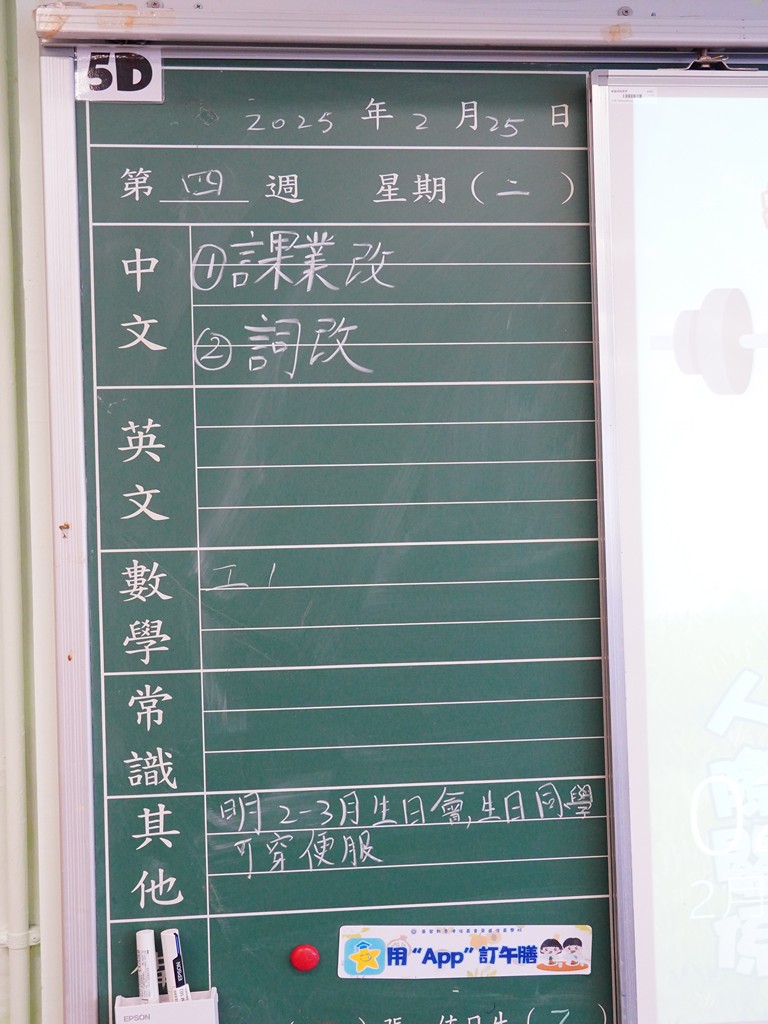 5D
2025 年 2 月 25 日
第 四 週 星期 ( 二 )
中文
① 課業改
② 詞改
英文
數學
工1
常識
其他
明 2-3月生日會,生日同學
可穿便服
用 “App” 訂午膳
EPSON
EPSON